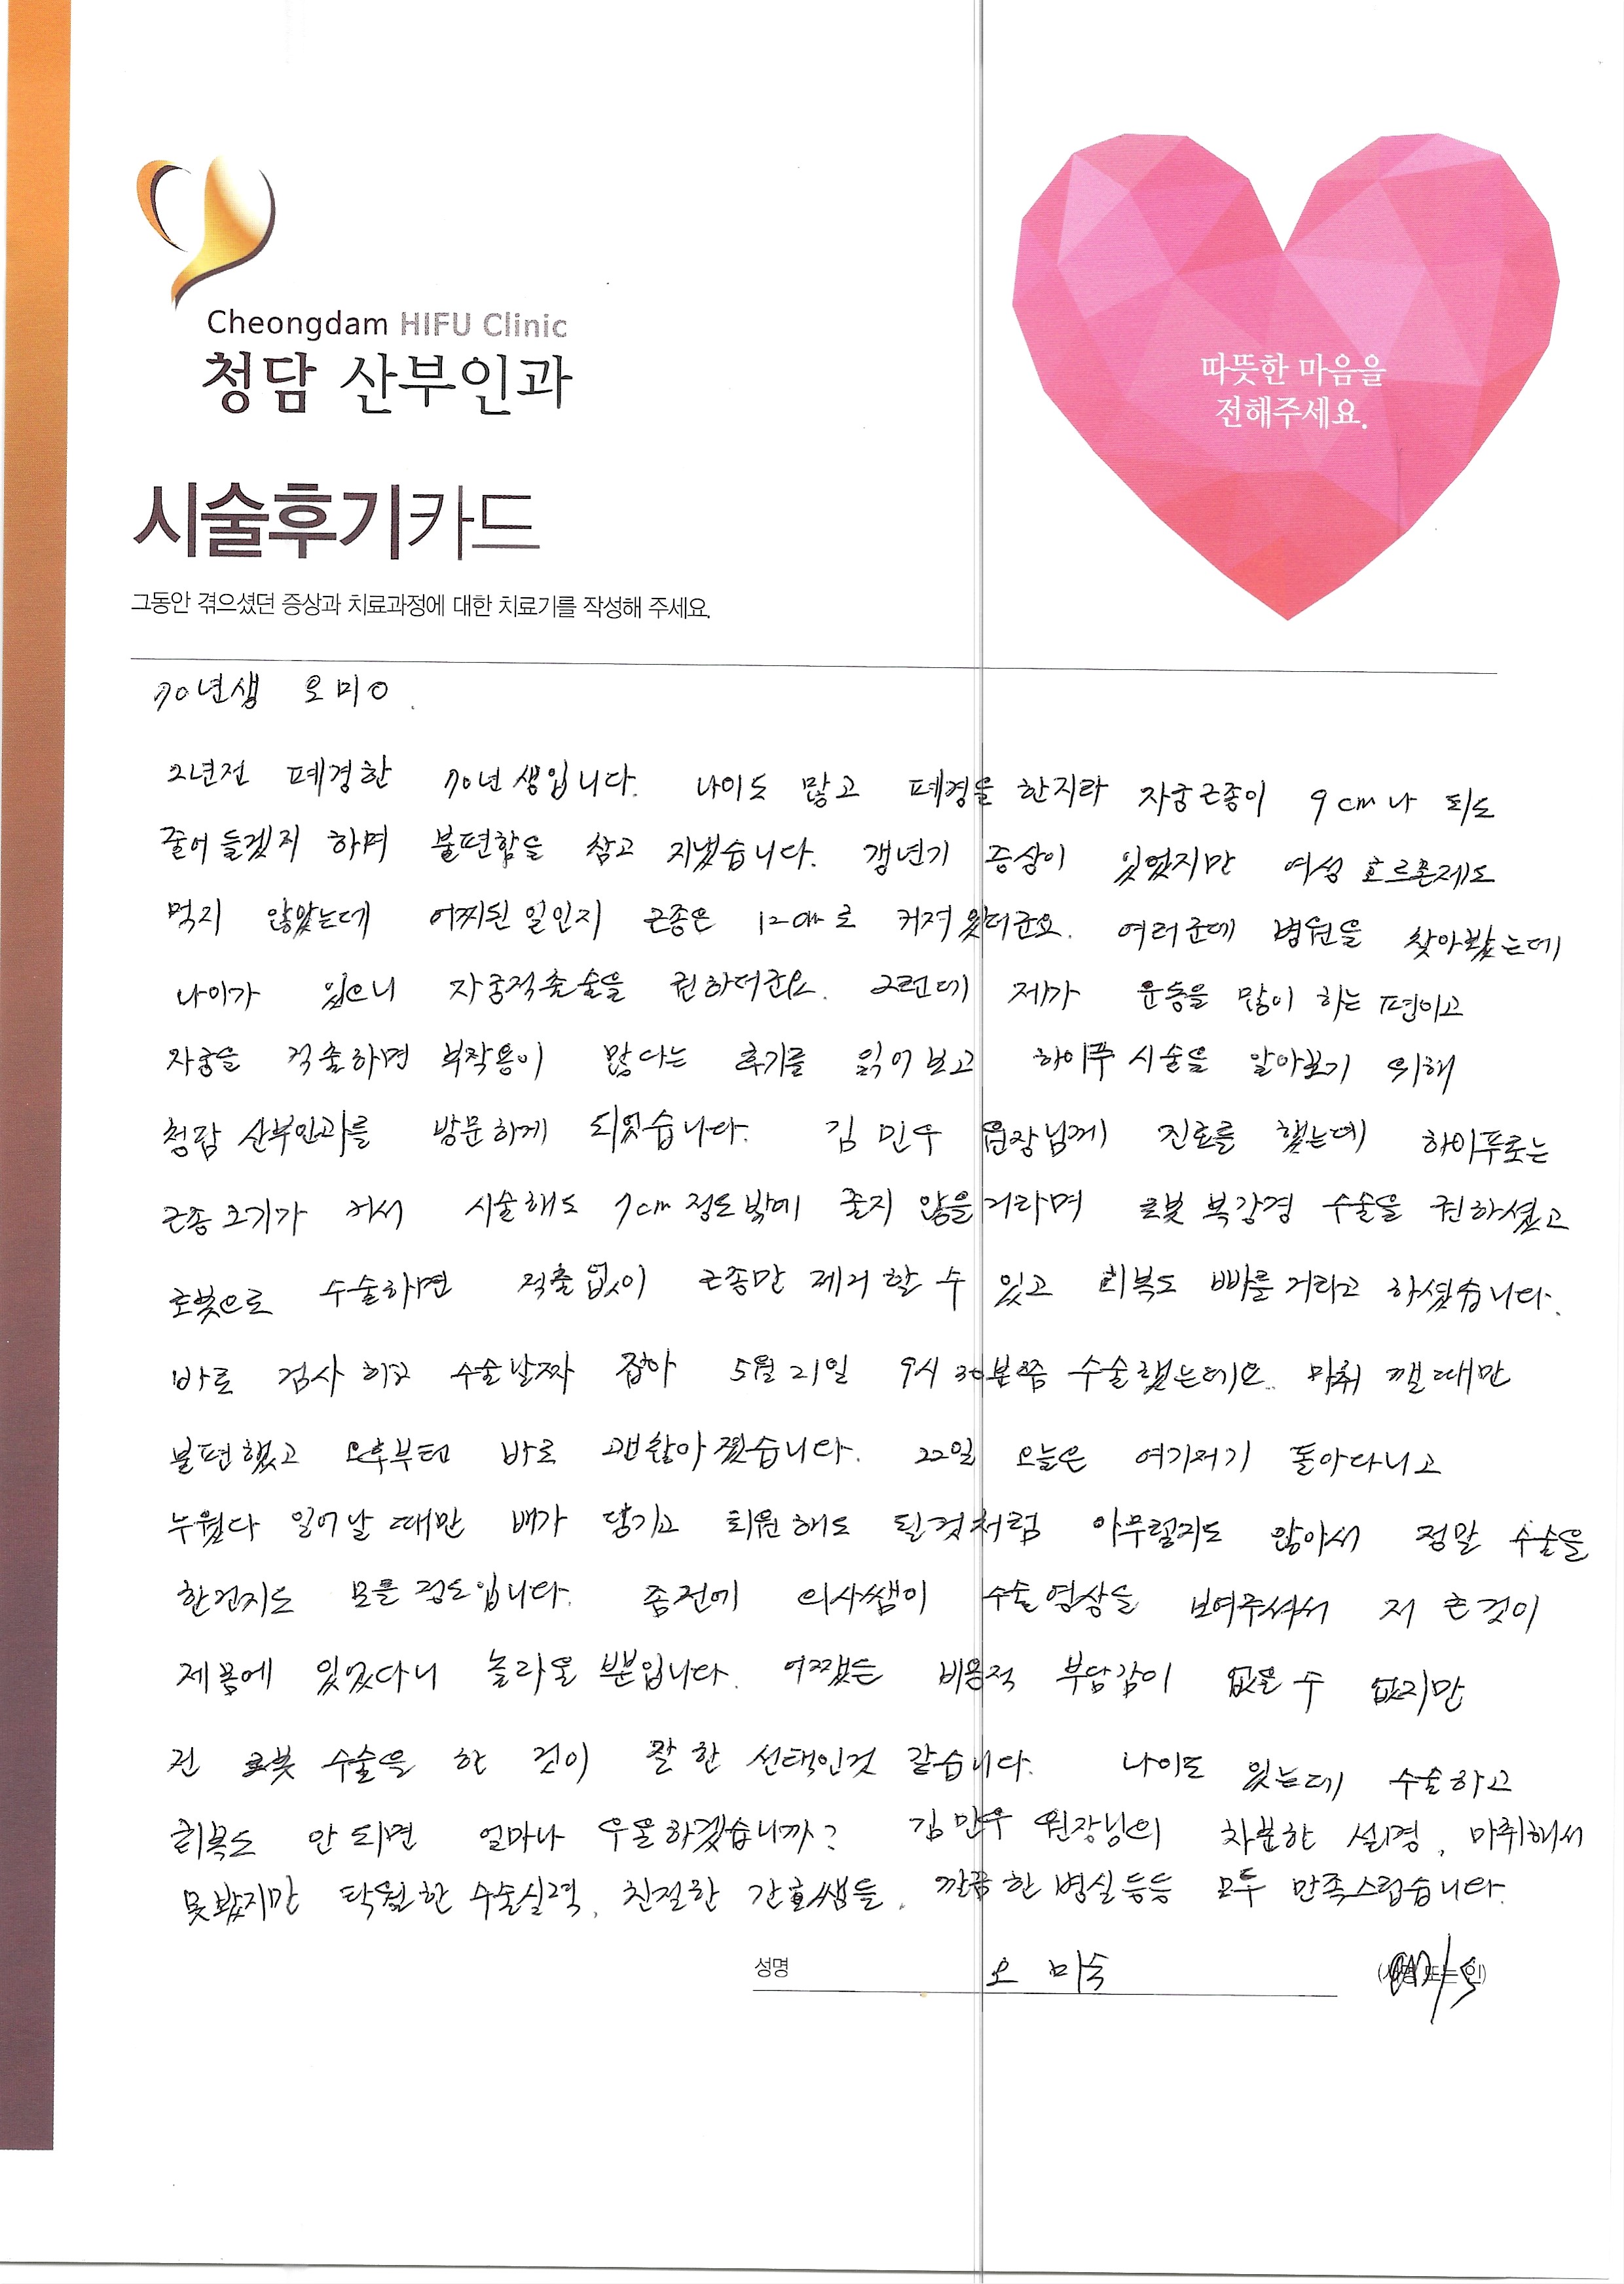 Cheongdam HIFU Clinic
청담 산부인과
따뜻한 마음을
전해주세요.
시술후기카드
그동안 겪으셨던 증상과 치료과정에 대한 치료기를 작성해 주세요.
70년생 오미O.
2년전 폐경한 70년생입니다. 나이도 많고 폐경을 한지라 자궁근종이 9cm나 되도
줄어들겠지 하며 불편함을 참고 지냈습니다. 갱년기 증상이 있었지만 여성호르몬제도
먹지 않았는데 어찌된 일인지 근종은 12cm로 커져 왔더군요. 여러군데 병원을 찾아봤는데
나이가 있으니 자궁적출술을 권하더군요. 그런데 제가 운동을 많이 하는 편이고
자궁을 적출하면 부작용이 많다는 후기를 읽어보고 하이푸 시술을 알아보기 위해
청담 산부인과를 방문하게 되었습니다. 김민우 원장님께 진료를 했는데 하이푸로는
근종크기가 커서 시술해도 7cm정도밖에 줄지 않을거라며 로봇 복강경 수술을 권하셨고
로봇으로 수술하면 적출없이 근종만 제거할 수 있고 회복도 빠를거라고 하셨습니다.
바로 검사하고 수술날짜 잡아 5월 21일 9시 30분쯤 수술했는데요. 마취 깰 때만
불편했고 오후부터 바로 괜찮아졌습니다. 22일 오늘은 여기저기 돌아다니고
누웠다 일어날 때만 배가 당기고 퇴원해도 될것처럼 아무렇지도 않아서 정말 수술을
한건지도 모를 정도입니다. 좀전에 의사쌤이 수술영상을 보여주셔서 저 큰것이
제몸에 있었다니 놀라울 뿐입니다. 어쨌든 비용적 부담감이 없을 수 없지만
전 로봇 수술을 한 것이 잘 한 선택인것 같습니다. 나이도 있는데 수술하고
회복도 안되면 얼마나 우울하겠습니까? 김민우 원장님의 차분한 설명, 마취해서
못봤지만 탁월한 수술실력, 친절한 간호쌤들, 깔끔한 병실등등 모두 만족스럽습니다.
성명 오미숙